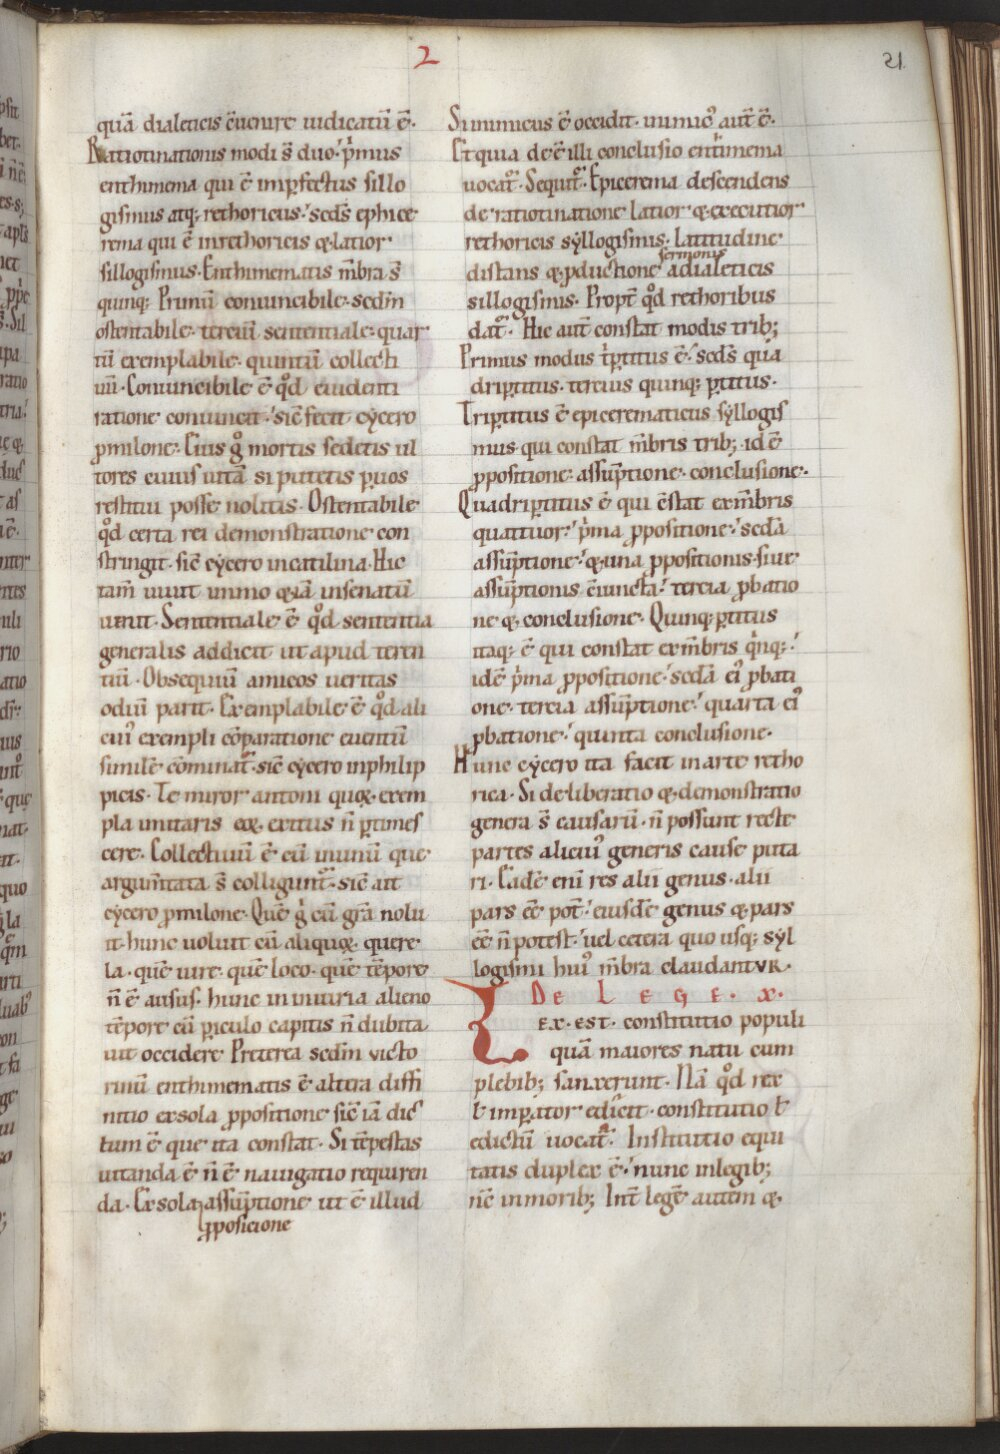 2
21
quā dialeticis cūenire iudicatū ē.
Ratiotinationis modi s̄ duo. p̄mus
enthimema qui ē imp̄fectus sillo
gismus atq; rethoricus. seds ephice
rema qui ē inrethoricis & latior
sillogismus. Enthimematis m̄bra s̄
quinq; Primū conuincibile. sedm̄
ostentabile. terciū sententiale. quar
tū exemplabile. quintū collecti
uū. Conuincibile ē qd̄ euidenti
ratione conuincit. sic̄ fecit cycero
pmilone. Eius g̊ mortis sedetis ul
tores cuius uitā si putetis p uos
restitui posse nolitis. Ostentabile
qd̄ certa rei demonstratione con
stringit. sic̄ cycero incatilina. Hic
tam̄ uiuit immo & iā insenatū
uenit. Sententiale ē qd̄ sententia
generalis addicit ut apud teren
tiū. Obsequiū amicos ueritas
odiū parit. Exemplabile ē qd̄ ali
cui' exempli cōparatione euentū
similē cōminat̄. sic̄ cycero inphilip
picis. Te miror antoni quoꝝ exem
pla imitaris eoꝝ exitus n̄ ptimes
cere. Collectiuū ē cū inunū que
argum̄tata s̄ colligunt̄. sic̄ ait
cycero pmilone. Quē g̊ cū gr̄a nolu
it. hunc uoluit cū aliquoꝝ quere
la. quē iure. quē loco. quē tēpore
n̄ ē ausus. hunc ininiuria alieno
tēpore cū piculo capitis n̄ dubita
uit occidere. Preterea sedm̄ victo
rinū enthimematis ē altera diffi
nitio exsola ppositione sic̄ iā dic
tum ē que ita constat. Si tēpestas
uitanda ē n̄ ē nauigatio requiren
da. Ex sola assūptione ut ē illud
pposicione
Si inimicus ē occidit. inimic' aut̄ ē.
Et quia deē illi conclusio ent̄imema
uocat̄. Sequit̄. Epicerema descendens
de ratiotinatione latior & executior
rethoricis syllogismis. latitudine
sermonis
distans & pductione adialeticis
sillogismis. Propt̄ qd̄ rethoribus
dat̄. Hic aut̄ constat modis trib;
Primus modus tr̄ptitus ē. seds qua
driptitus. tercius quinq; ptitus.
Triptitus ē epicerematicus syllogis
mus qui constat m̄bris trib; id ē
ppositione. assūptione. conclusione.
Quadriptitus ē qui cōstat exm̄bris
quattuor. p̄ma ppositione. sedā
assūptione. & una ppositionis siue
assūptionis cīuncta. tercia pbatio
ne & conclusione. Quinq; ptitus
itaq; ē qui constat exm̄bris q̄nq;
idē p̄ma ppositione. sedā ei' pbati
one. tercia assūptione. quarta ei'
pbatione. quinta conclusione.
Hunc cycero ita facit inarte retho
rica. Si deliberatio & demonstratio
genera s̄ causarū. n̄ possunt recte
partes alicui' generis cause puta
ri. Eadē eni res alii genus. alii
pars eē pot̄. eiusdē genus & pars
eē n̄ potest. uel cetera quo usq; syl
logismi hui' m̄bra claudantvr.
De Lege. x.
Lex. est. constitutio populi
quā maiores natu cum
plebib; sanxerunt. Nā qd̄ rex
ł impator edicit. constitutio ł
edictū uocat̄. Institutio equi
tatis duplex ē. nunc inlegib;
nc̄ inmorib; Int̄ legē autem &